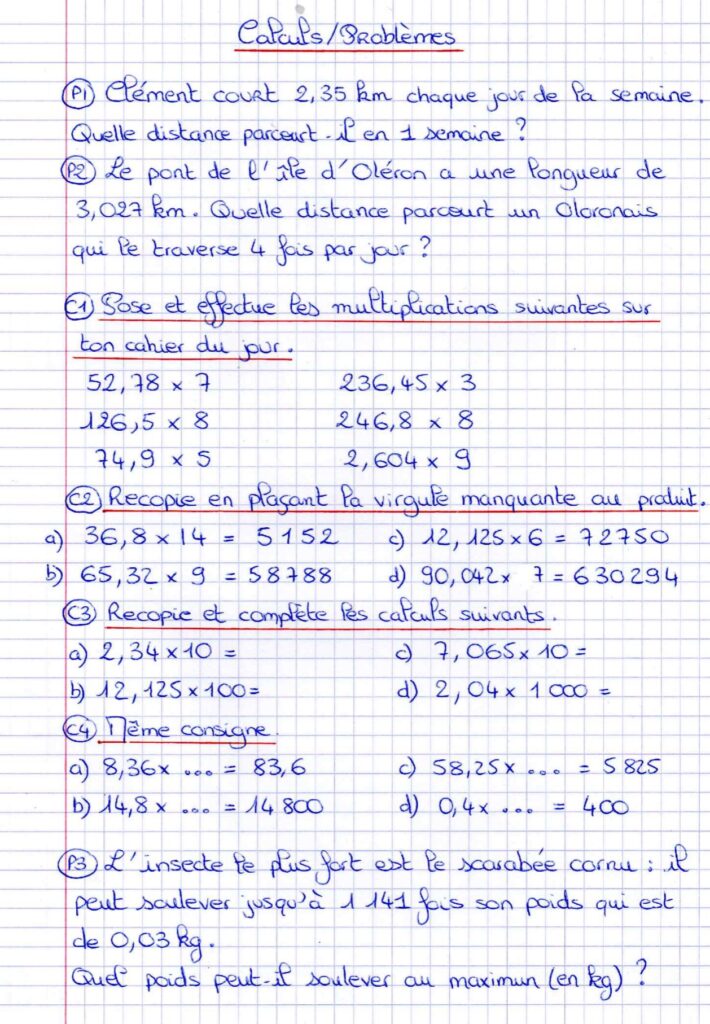 Calculs/Problèmes
P1 Clément court 2,35 km chaque jour de la semaine.
Quelle distance parcourt-il en 1 semaine ?
P2 Le pont de l'île d'Oléron a une longueur de
3,027 km. Quelle distance parcourt un Oloronais
qui le traverse 4 fois par jour ?
C1 Pose et effectue les multiplications suivantes sur
ton cahier du jour.
52,78 × 7 236,45 × 3
126,5 × 8 246,8 × 8
74,9 × 5 2,604 × 9
C2 Recopie en plaçant la virgule manquante au produit.
a) 36,8 × 14 = 5152 c) 12,125 × 6 = 72750
b) 65,32 × 9 = 58788 d) 90,042 × 7 = 630294
C3 Recopie et complète les calculs suivants.
a) 2,34 × 10 = c) 7,065 × 10 =
b) 12,125 × 100 = d) 2,04 × 1 000 =
C4 Même consigne.
a) 8,36 × ... = 83,6 c) 58,25 × ... = 5 825
b) 14,8 × ... = 14 800 d) 0,4 × ... = 400
P3 L'insecte le plus fort est le scarabée cornu : il
peut soulever jusqu'à 1 141 fois son poids qui est
de 0,03 kg.
Quel poids peut-il soulever au maximun (en kg) ?